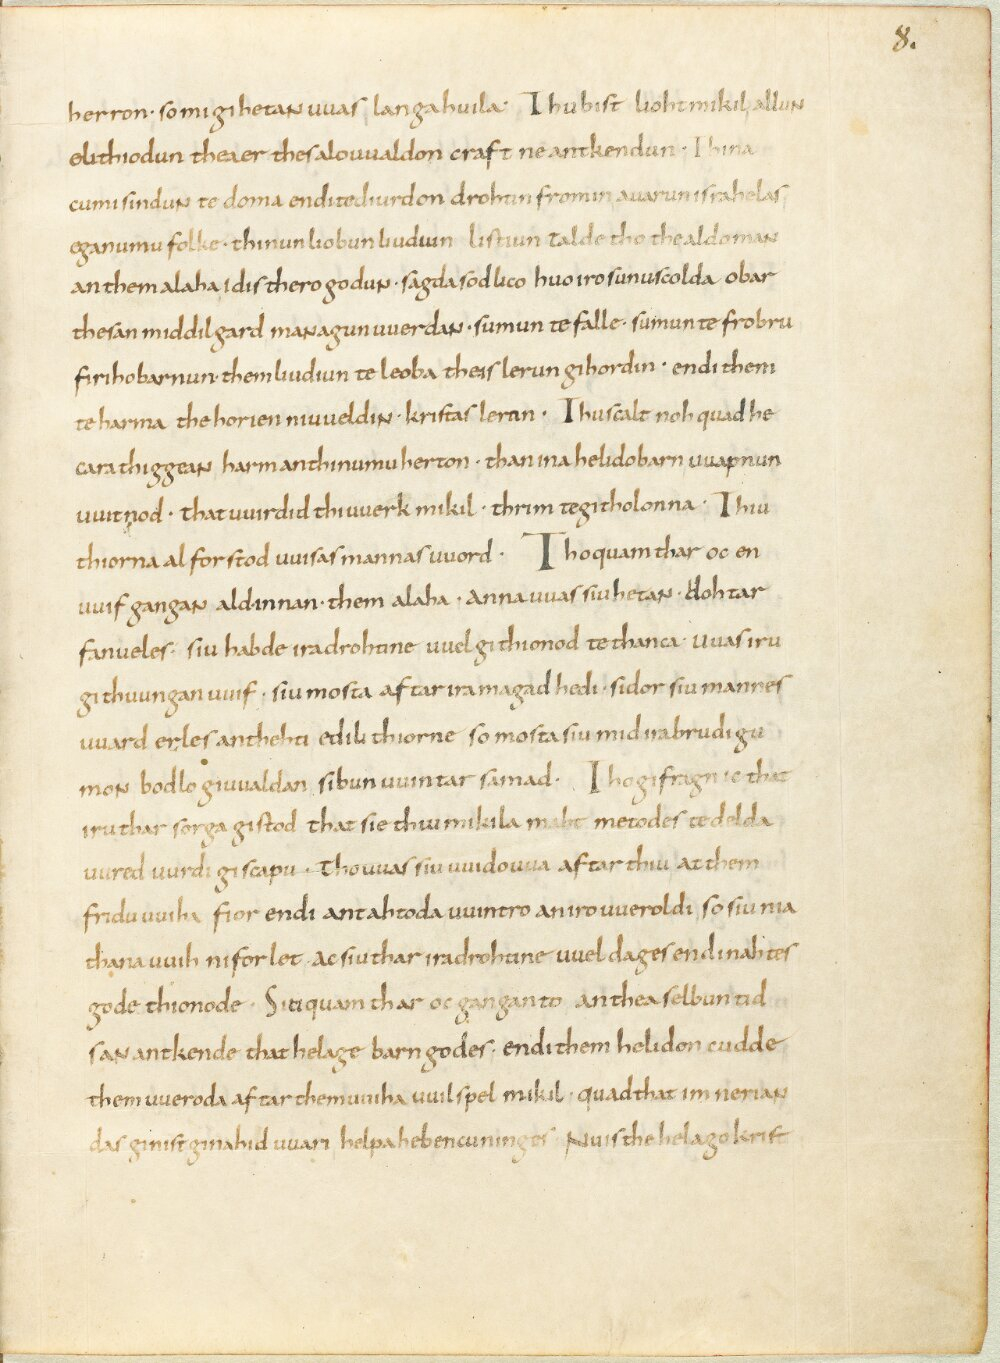 8.
herron· so mi gihetan uuas langa huila· Thu bist lioht mikil, allun
elithiodun thea er thes alouualdon craft ne antkendun· Thina
cumi sindun te doma endi te diurdon drohtin fro min auarun israhelas
eganumu folke· thinun liobun liudiun listiun talde tho the aldo man
an them alaha idis thero godun· sagda sodlico huo iro sunu scolda obar
thesan middilgard managun uuerdan· sumun te falle· sumun te frobru
firiho barnun· them liudiun te leoba the is lerun gihordin· endi them
te harma the horien ni uueldin· kristas leron· Thu scalt noh quad he
cara thiggean harm an thinumu herton· than ina helido barn uuapnun
uuitnod· that uuirdid thi uuerk mikil· thrim te githolonna· Thiu
thiorna al forstod uuisas mannas uuord· Tho quam thar oc en
uuif gangan ald innan· them alaha· anna uuas siu hetan· dohtar
fanueles· siu habde ira drohtine uuel githionod te thanca· uuas iru
githuungan uuif· siu mosta aftar ira magad hedi· sidor siu mannes
uuard erles an thehti edili thiorne so mosta siu mid ira brudigu
mon bodlo giuualdan sibun uuintar samad· Tho gifragn ic that
iru thar sorga gistod that sie thiu mikila maht metodes te delda
uured uurdi giscapu· Tho uuas siu uuidouua aftar thiu at them
fridu uuiha fior endi antahtoda uuintro an iro uueroldi so siu nia
thana uuih ni forlet· ac siu thar ira drohtine uuel dages endi nahtes
gode thionode· Siu quam thar oc gangan to an thea selbun tid
san antkende that helage barn godes· endi them helidon cudde
them uueroda aftar them uuiha uuilspel mikil· quad that im nerian
das ginist ginahid uuari helpa heben cuninges Nu is the helago krist